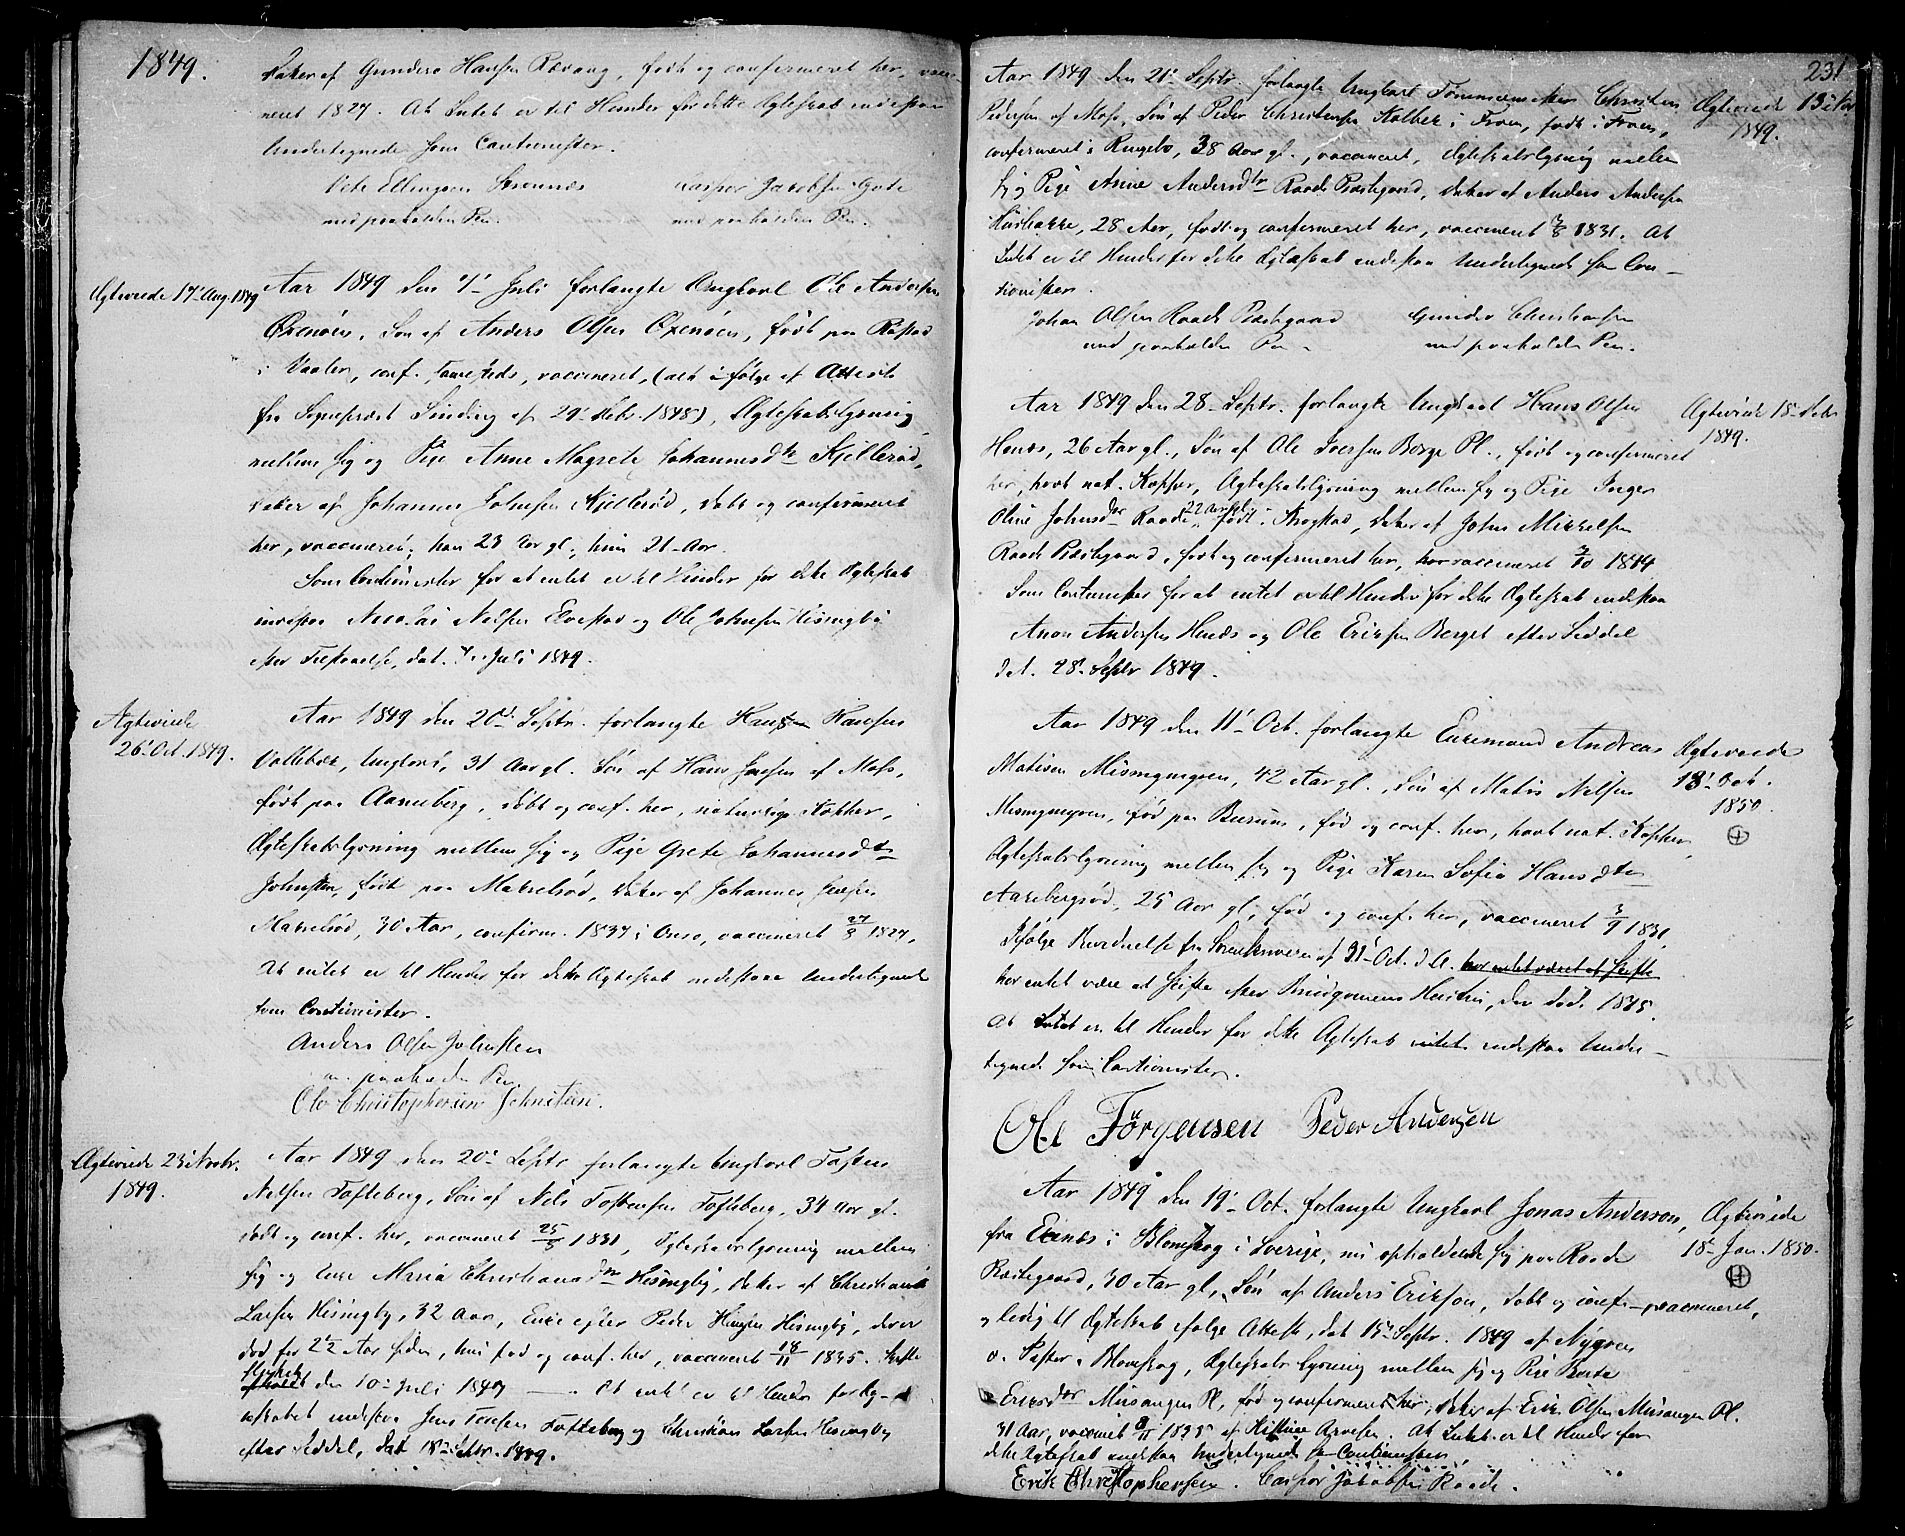 1849.
Datter af Gunders Hansen Rævaug, født og confirmeret her, vacci-
neret 1827. At Intet er til Hinder for dette Ægteskab indestaa
Undertegnede som Cautionister.
Ellingsen Casper Jacobsen
med paaholden Pen. med paaholden Pen.
Ægteviede 17' Aug. 1849
Aar 1849 den 7' Juli forlangte Ungkarl Ole Andersen
Oxenøen, Søn af Anders Olsen Oxenøen, født paa Røstad
i Vaaler, conf. sammesteds, vaccineret, (alt ifølge af Attest
fra Sognepræst Sinding af 29' Febr. 1848), Ægteskabslysning
mellem sig og Pige Anne Magrete Johannesdtr Kjellerød,
Datter af Johannes Johnsen Kjellerød, døbt og confirmeret
her, vaccineret; han 23 Aar gl., hun 21 Aar.
Som Cautionister for at intet er til Hinder for dette Ægteskab
indestaa Nicolai Nilsen Evestad og Ole Johnsen Hisingby
efter Tilstaaelse, dat. 7. Juli 1849.
Ægteviede
26' Oct. 1849.
Aar 1849 den 20d Septr. forlangte Hans Hansen
Vallebæk, Ungkarl, 31 Aar gl. Søn af Hans Jensen af Moss,
født paa Aaneberg, døbt og conf. her, naturlige Kopper,
Ægteskabslysning mellem sig og Pige Grete Johannesdtr
Johnsten, født paa Makrelrød, Datter af Johannes Jensen
Makrelrød, 30 Aar, confirm. 1837 i Onsø, vaccineret 27/8 1827,
At intet er til Hinder for dette Ægteskab indestaa Undertegnede
som Cautionister.
Anders Olsen Johnsten
m. paaholden Pen.
Ole Christophersen Johnsten.
Ægteviede 23' Novbr.
1849.
Aar 1849 den 20' Septr. forlangte Ungkarl Tosten
Nilsen Tofteberg, Søn af Nils Tostensen Tofteberg, 34 Aar gl.
døbt og conf. her, vaccineret 25/5 1831, Ægteskabslysning mellem
sig og Enke Maria Christiansdtr Hisingby, Datter af Christian
Larsen Hisingby, 32 Aar, Enke efter Peder Hisingby, der er
død for 2½ Aar siden, hun fød og conf. her, vaccineret 18/11 1835. Skifte
den 10' Juli 1849. At intet er til Hinder for Æg-
teskabet indestaa Jens Tofteberg og Christian Larsen Hisingby
efter Seddel, dat 18' Septbr. 1849.
231
Aar 1849 den 21' Septr. forlangte Ungkarl Christen
Pedersen af Moss, Søn af Peder Christensen Kolbek i Froen, født i Froen,
confirmeret i Ringebo, 38 Aar gl., vaccineret, Ægteskabslysning mellem
sig og Pige Anne Andersdtr Raade Præstegaard, Datter af Anders Andersen
28 Aar, født og confirmeret her, vaccineret 1831. At
Intet er til Hinder for dette Ægteskab indestaa Undertegnede som Cau-
tionister.
Johan Olsen Raade Præstegaard Gunder Christensen
med paaholden Pen. med paaholden Pen.
Ægteviede
1849.
Aar 1849 den 28. Septr. forlangte Ungkarl Hans Olsen
Henæs, 26 Aar gl., Søn af Ole Iversen Borge Pl., født og confirmeret
her, havt nat. Kopper, Ægteskabslysning mellem sig og Pige Inger
Oline Johnsdtr Raade, 22 Aar gl., født i Skogstad, Datter af John Mikkelsen
Raade Præstegaard, født og confirmeret her, vaccineret 1844
Som Cautionister for at intet er til Hinder for dette Ægteskab indestaa
Anon Andersen Henæs og Ole Eriksen Berget efter Seddel
dat. 28. Septr 1849.
Ægteviede
1849.
Aar 1849 den 11' Oct. forlangte Enkemand Andreas
Matisen Misingmyren, 42 Aar gl., Søn af Matis Nilsen
Misingmyren, fød paa Burum, fød og conf. her, havt nat. Kopper,
Ægteskabslysning mellem sig og Pige Karen Sofia Hansdtr
Aarebergsrød, 25 Aar gl., fød og conf. her, vaccineret 3/9 1831.
Ifølge Bevidnelse fra Sorenskriveren af Oct. d. A. har intet været at skifte
har intet være at skifte efter Brudgommens Hustru, der døde 1845.
At Intet er til Hinder for dette Ægteskab intet indestaa Under-
tegnede som Cautionister.
Ole Jörgensen Peder Andersen
Ægteviede
18' Oct.
1850.
Aar 1849 den 19' Oct. forlangte Ungkarl Jonas Anderson,
fra Ecknæs i Blomskog i Sverige, nu opholdende sig paa Raade
Præstegaard, 30 Aar gl., Søn af Anders Erikson, døbt og conf. vaccineret,
og ledig til Ægteskab ifølge Attest, dat 15' Septr. 1849 af Nygren
v. Pastor i Blomskog, Ægteskabslysning mellem sig og Pige Berta
Eriksdtr Misangen Pl., fød og confirmeret her, Datter af Erik Olsen Misangen Pl.
31 Aar, vaccineret 1825 af At Intet er til Hinder for
dette Ægteskab indestaa Undertegnede som Cautionister.
Erik Christophersen. Casper Jakobsen Raade.
Ægteviede
18' Jan. 1850.